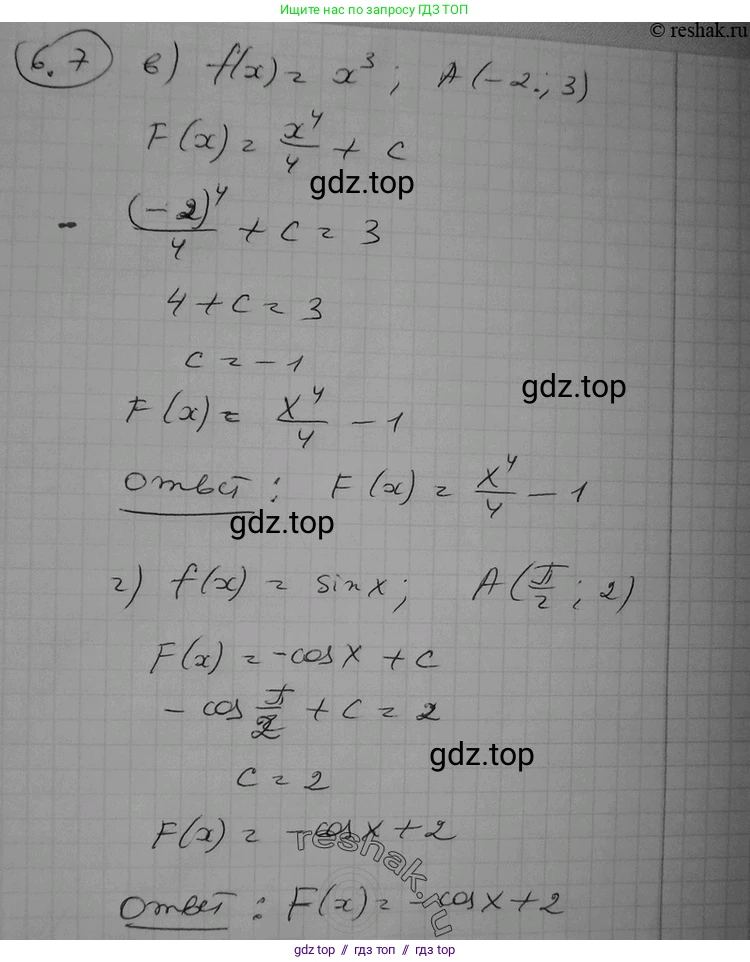 Ищите нас по запросу ГДЗ ТОП
© reshak.ru
6.7 в) f(x) = x³; A(-2; 3)
F(x) = x⁴/4 + C
gdz.top
- (-2)⁴/4 + C = 3
4 + C = 3
C = -1
gdz.top
F(x) = x⁴/4 - 1
Ответ: F(x) = x⁴/4 - 1
gdz.top
г) f(x) = sin x; A(π/2; 2)
F(x) = -cos x + C
- cos π/2 + C = 2
gdz.top
C = 2
F(x) = -cos x + 2
reshak.ru
Ответ: F(x) = -cos x + 2
gdz.top // гдз топ // gdz top